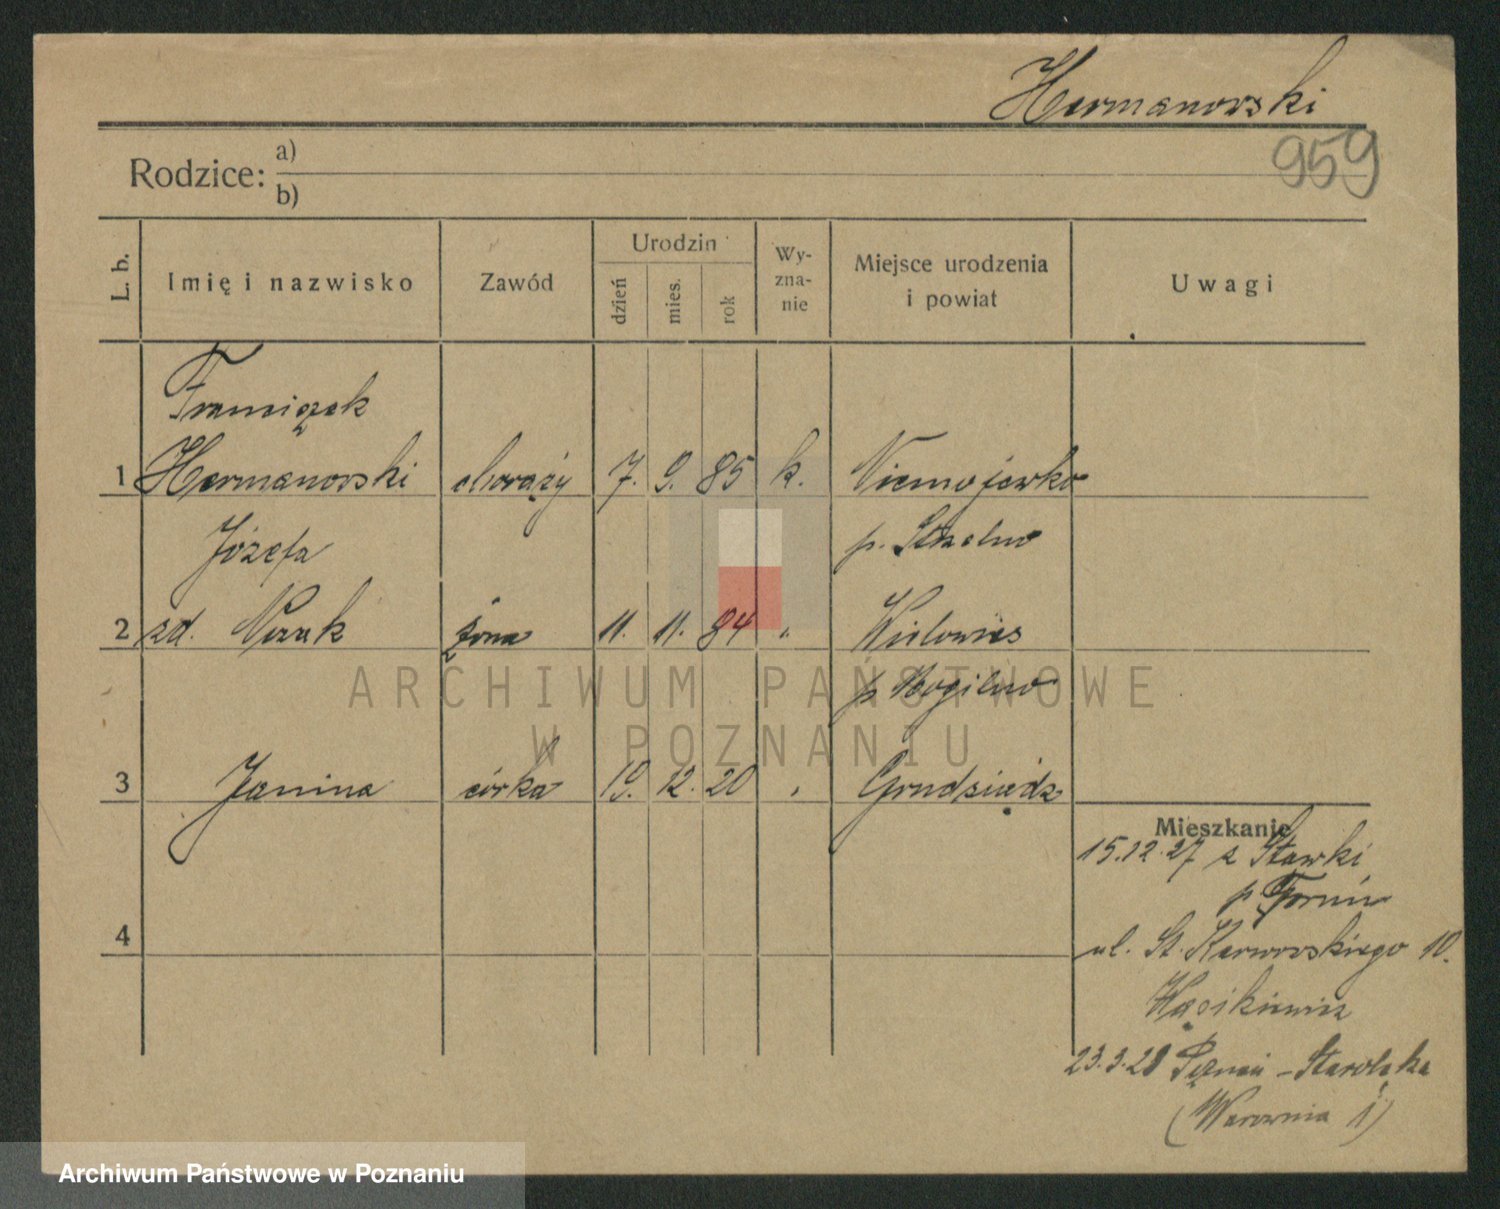 Hermanowski
959
Rodzice: a)
b)
L. b.
Imię i nazwisko
Zawód
Urodzin
dzień
mies.
rok
Wy-
zna-
nie
Miejsce urodzenia
i powiat
Uwagi
Franciszek
1 Hermanowski chorąży 7. 9. 85 k. Niemojewko
Józefa p. Strzelno
2 zd. Nowak żona 11. 11. 84 " Wielowieś
p. Mogilno
3 Janina córka 19. 12. 20 " Grudziądz
4
Mieszkanie
15.12.27 z Stawki
p. Toruń
ul. St. Karwowskiego 10.
23.3.28 Poznań - Starołęka
(Warownia I)
ARCHIWUM PAŃSTWOWE
W POZNANIU
Archiwum Państwowe w Poznaniu